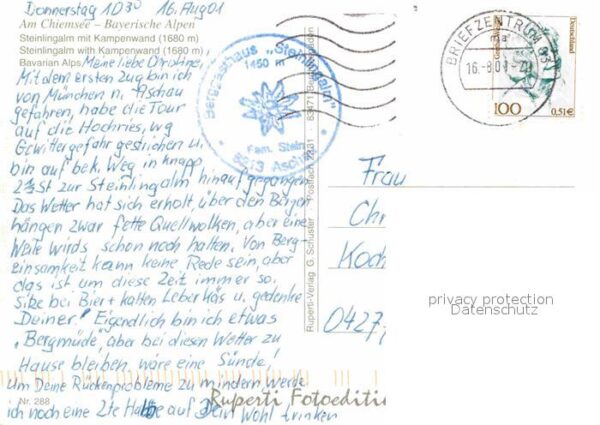 Donnerstag 10 30 16. Aug 01
Am Chiemsee – Bayerische Alpen
Steinlingalm mit Kampenwand (1680 m)
Steinlingalm with Kampenwand (1680 m)
Bavarian Alps
Meine liebe Christine,
Mit dem ersten Zug bin ich
von München n. Aschau
gefahren, habe die Tour
auf die Hochries, wg
Gewittergefahr gestrichen u.
bin auf bek. Weg in knapp
2½ St zur Steinlingalm hinauf gegangen.
Das Wetter hat sich erholt, über den Bergen
hängen zwar fette Quellwolken, aber eine
Weile wirds schon noch halten. Von Berg-
einsamkeit kann keine Rede sein, aber
das ist um diese Zeit immer so.
Sitze bei Bier + kalten Leberkäs u. gedenke
Deiner! Eigendlich bin ich etwas
"Bergmüde", aber bei diesen Wetter zu
Hause bleiben, wäre eine Sünde!
Um Deine Rückenprobleme zu mindern werde
ich noch eine 2te Halbe auf Dein Wohl trinken
Nr. 288
Berggasthaus „Steinlingalm"
1450 m
Fam. Stein
8213 Aschau
Ruperti-Verlag G. Schuster Postfach 2231 · 83471
BRIEFZENTRUM 83
16.-8.01
Deutschland
100
0,51€
Frau
Chr
Koch
0427
privacy protection
Datenschutz
Ruperti Fotoediti